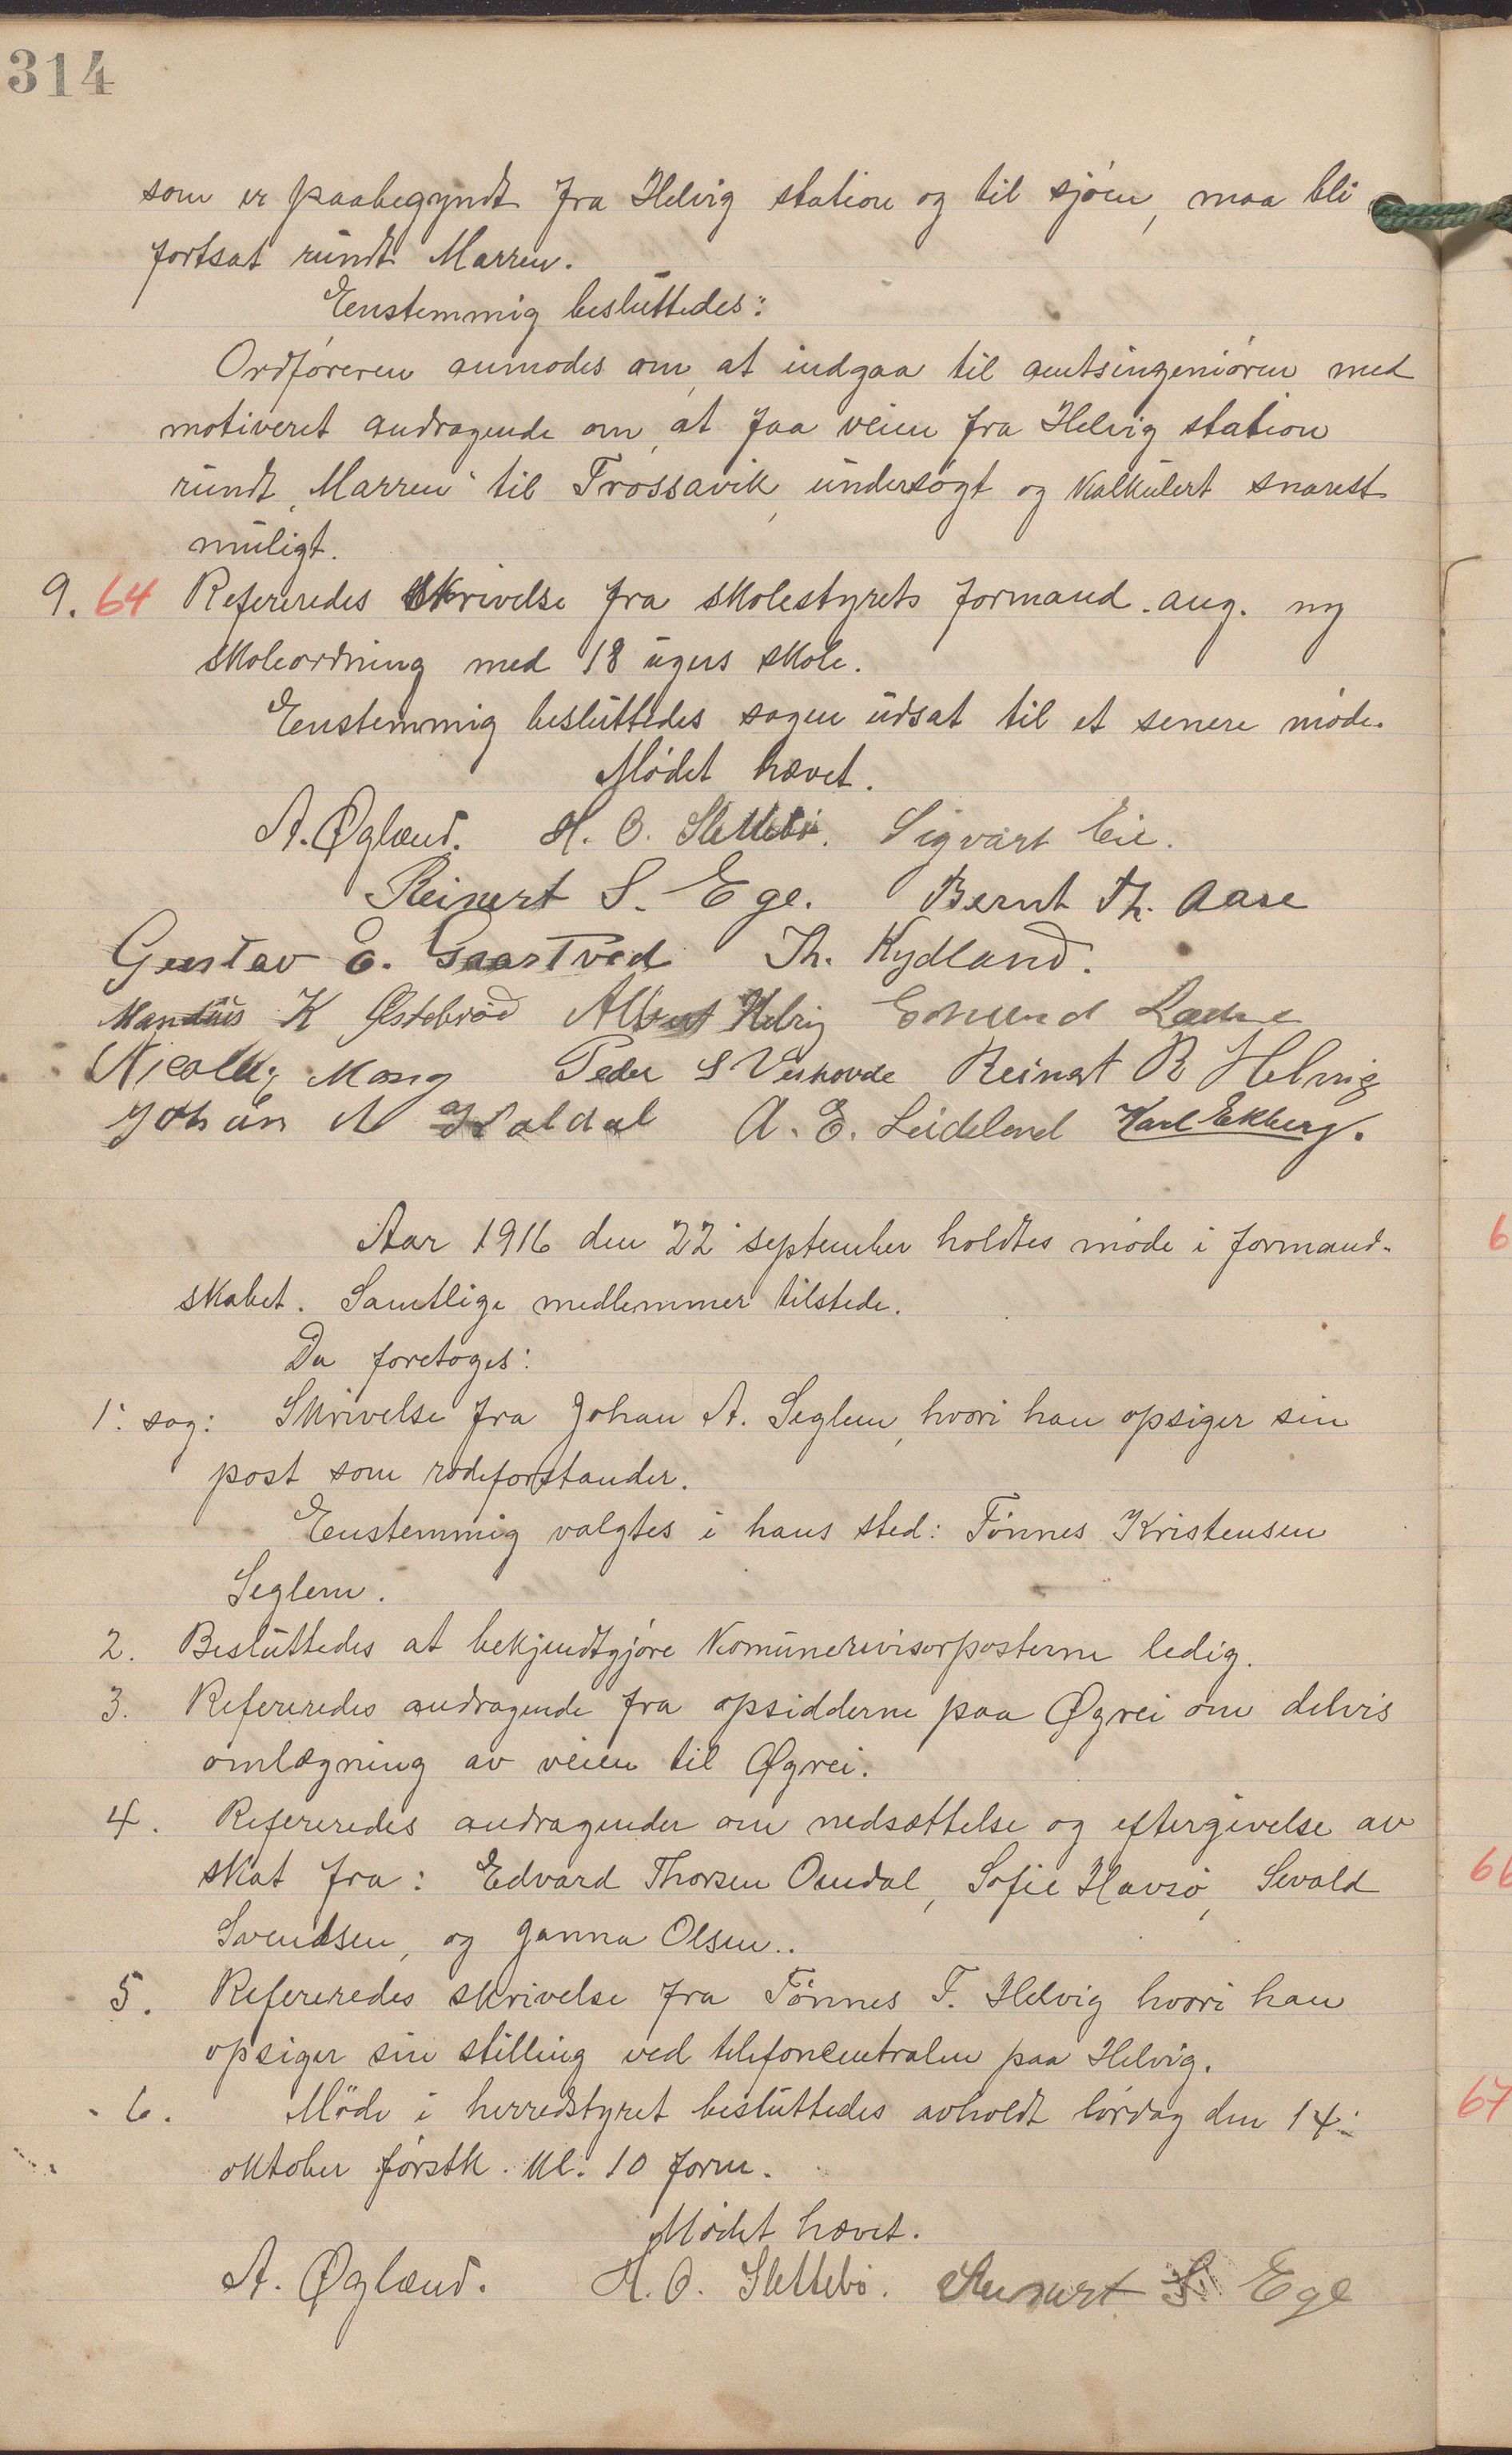 314
som er paabegyndt fra Helvig station og til sjöen, maa bli
fortsat rundt Marren.
Eenstemmig besluttedes:
Ordföreren anmodes om, at indgaa til amtsingeniören med
motiveret andragende om, at faa veien fra Helvig station
rundt „Marren“ til Trossavik, undersögt og kalkulert snarest
muligt.
9. 64 Refereredes skrivelse fra skolestyrets formand. ang. ny
skoleordning med 18 ugers skole.
Eenstemmig besluttedes sagen udsat til et senere möde.
Mödet hævet.
A. Øglænd. H. O. Slettebö. Sigvart Eie.
Reinert S. Ege. Bernt Th. Aase
Gustav E. Gaastved Th. Kydland.
Mandius K Østebröd Albert Helvig Edmund
Nicolky Mong Peder S Veshovde Reinert R Helvig
Johan A Hvaldal A. E. Leidland Karl Ekberg.
Aar 1916 den 22' september holdtes möde i formand-
skabet. Samtlige medlemmer tilstede.
Da foretoges:
1'. sag: Skrivelse fra Johan A. Seglem, hvori han opsiger sin
post som rodeforstander.
Eenstemmig valgtes i hans sted: Tönnes Kristensen
Seglem.
2. Besluttedes at bekjendtgjöre komunerevisorposterne ledig.
3. Refereredes andragende fra opsidderne paa Øgrei om delvis
omlægning av veien til Øgrei.
4. Refereredes andragender om nedsættelse og eftergivelse av
skat fra: Edvard Thorsen Omdal, Sofie Havsö, Sevald
Svendsen, og Janna Olsen..
5. Refereredes skrivelse fra Tönnes T. Helvig hvori han
opsiger sin stilling ved telefoncentralen paa Helvig.
6. Möde i herredstyret besluttedes avholdt lördag den 14.
oktober förstk. kl. 10 form.
Mödet hævet.
A. Øglænd. H. O. Slettebö. Reinert S. Ege
6
66
67